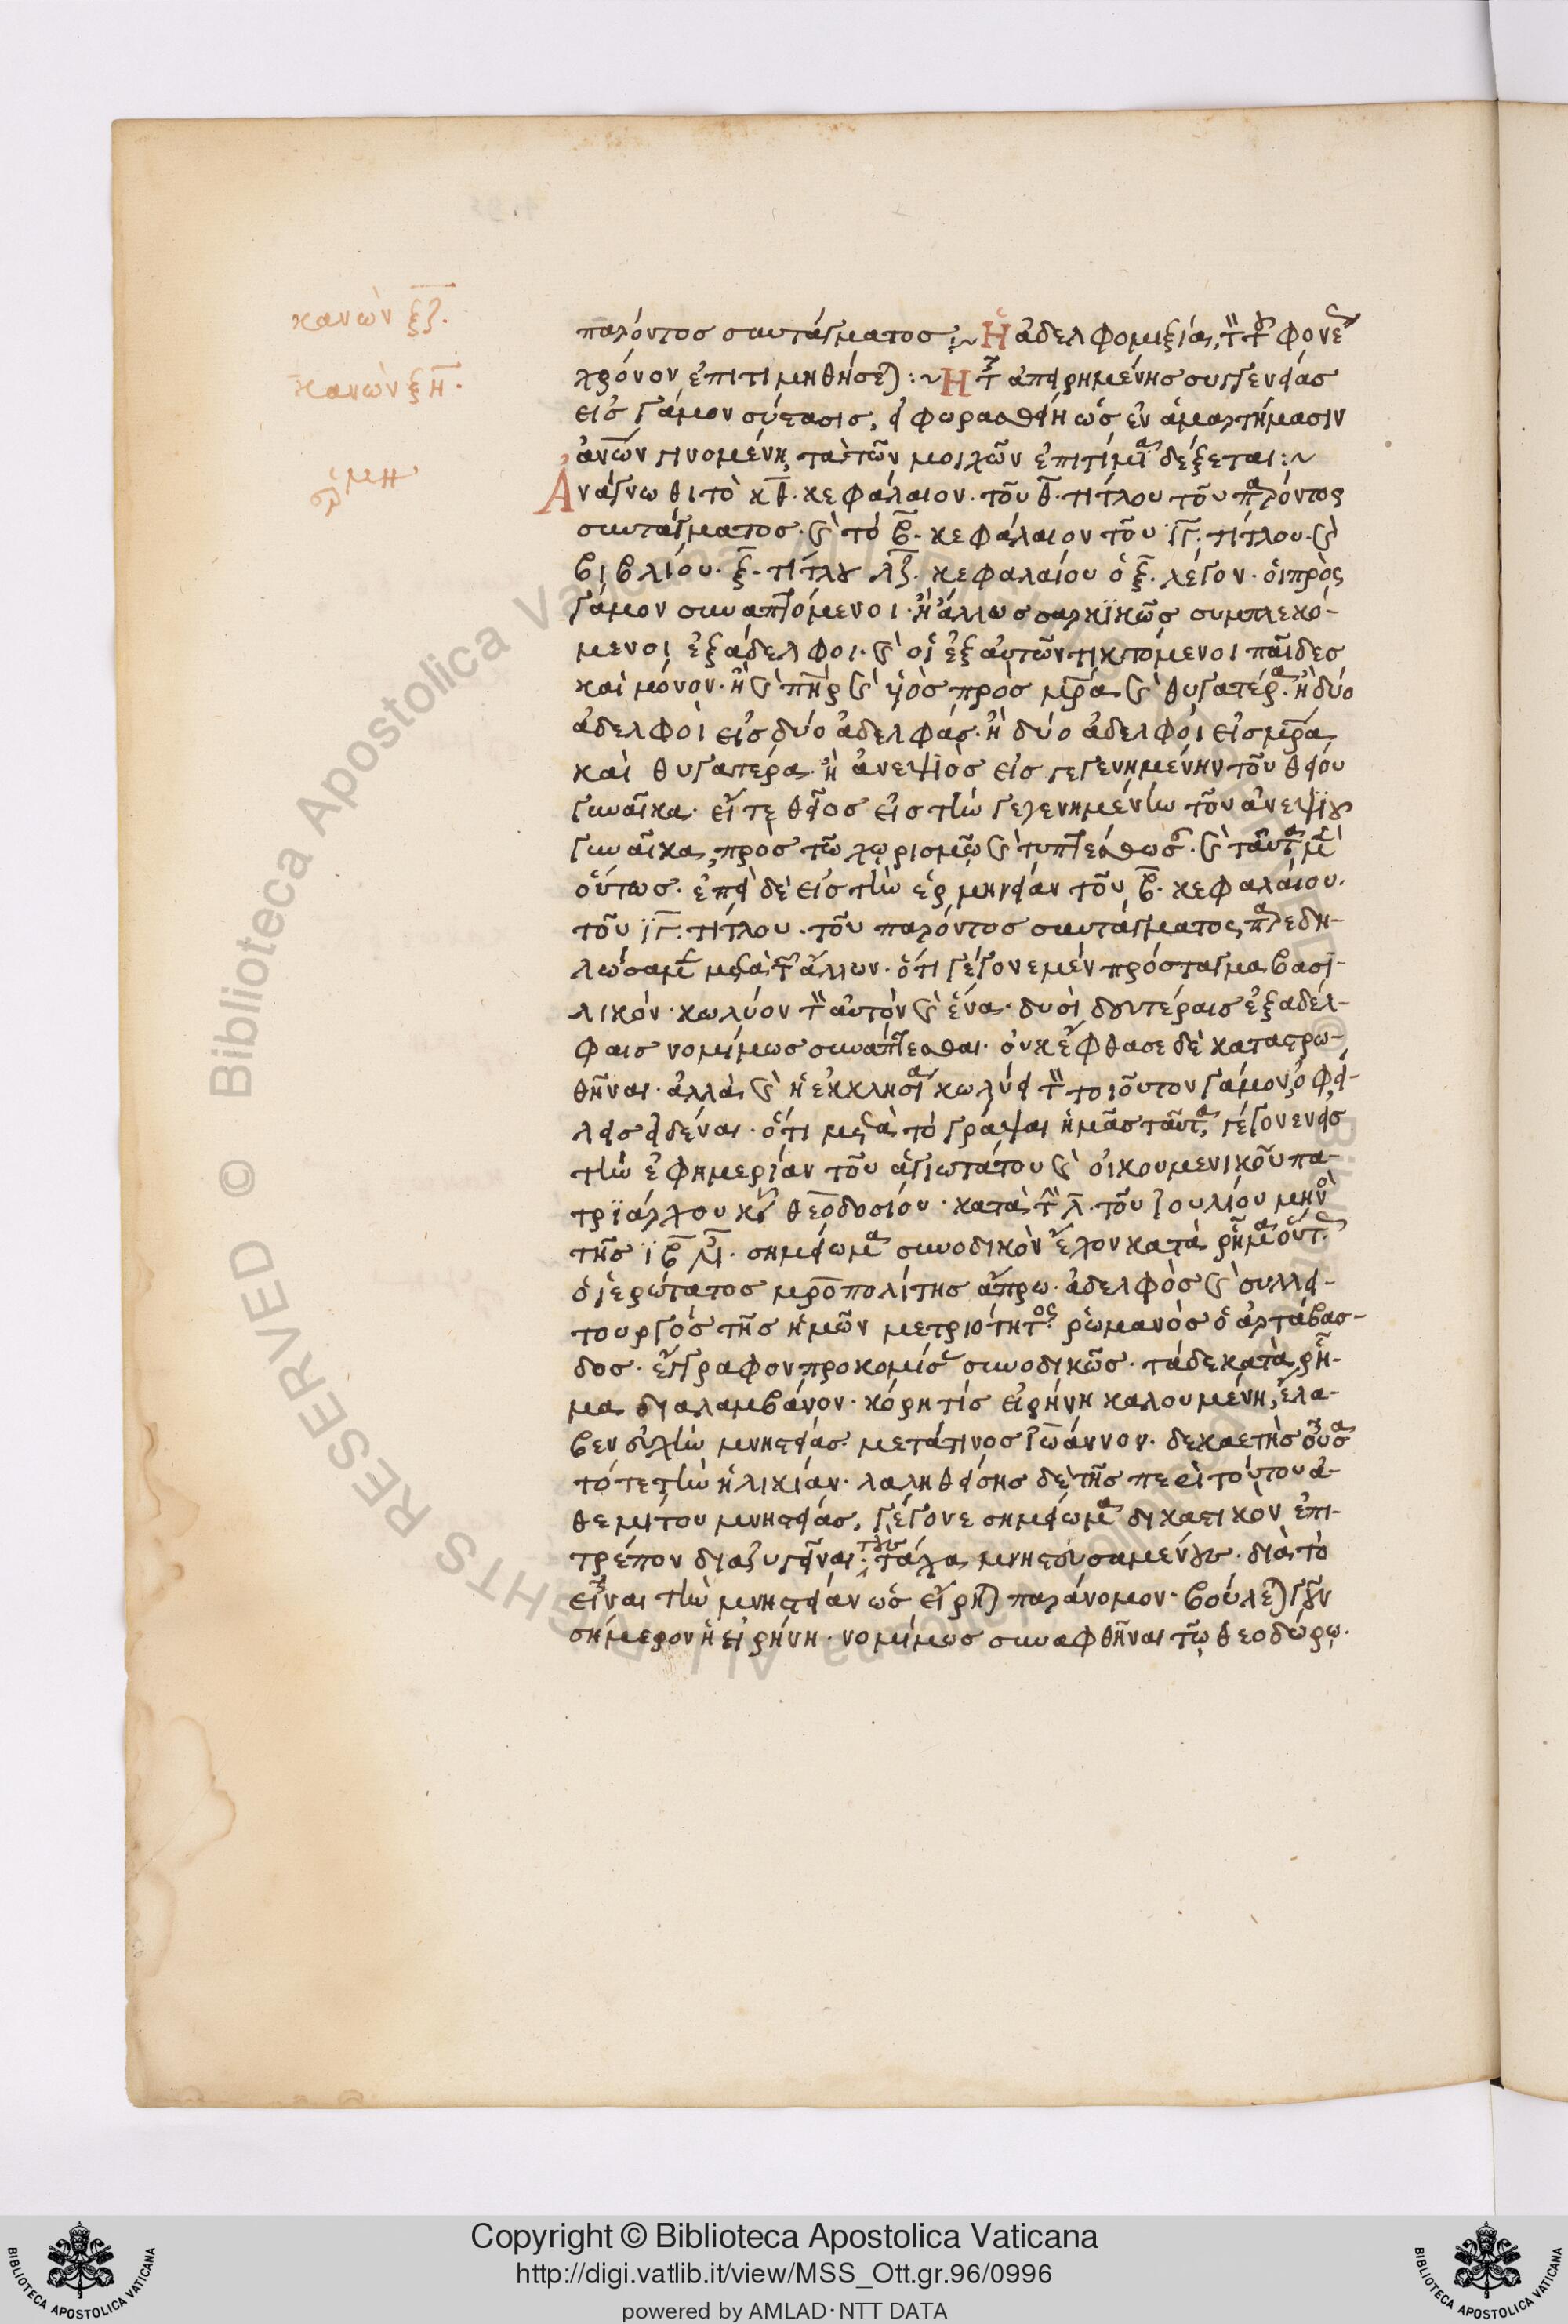 κανὼν ξζ.
κανὼν ξη.
παρόντος συντάγματος :~ Ἡ ἀδελφομιξία, τὸν τοῦ φονέως
χρόνον ἐπιτιμηθήσεται :~ Ἡ τῆς ἀπειρημένης συγγενείας
εἰς γάμον σύστασις, εἰ φωραθείη ὡς ἐν ἁμαρτήμασιν
ἀνων γινομένη, τὰ τῶν μοιχῶν ἐπιτίμια δέξεται :~
Ἀνάγνωθι τὸ κθ. κεφάλαιον. τοῦ θ. τίτλου τοῦ παρόντος
συντάγματος. καὶ τὸ β. κεφάλαιον τοῦ ιγ. τίτλου. καὶ
βιβλίου. ξ. τίτλου λζ. κεφαλαίου ὁ ξ. λέγον. οἱ πρὸς
γάμον συναπτόμενοι. ἢ ἄλλως σαρκϊκῶς συμπλεκό-
μενοι ἐξάδελφοι. καὶ οἱ ἐξ αὐτῶν τικτόμενοι παῖδες
καὶ μόνον. ἢ καὶ πηρ καὶ υἱὸς πρὸς μρα καὶ θυγατέρα. ἢ δύο
ἀδελφοὶ εἰς δύο ἀδελφάς. ἢ δύο ἀδελφοὶ εἰς μρα
καὶ θυγατέρα. ἢ ἀνεψϊὸς εἰς γεγενημένην τοῦ θείου
γυναῖκα. εἴτε θεῖος εἰς τὴν γεγενημένην τοῦ ἀνεψϊοῦ
γυναῖκα, πρὸς τῶ χωρισμῶ καὶ τυπτέσθωσαν. καὶ ταῦτα μὲν
οὕτως. ἐπεὶ δὲ εἰς τὴν ἑρμηνείαν τοῦ β. κεφαλαίου.
τοῦ ιγ. τίτλου. τοῦ παρόντος συντάγματος, παρεδη-
λώσαμεν μετὰ τῶν ἄλλων. ὅτι γέγονε μὲν πρόσταγμα βασϊ-
λικόν. κωλύον τὸν αὐτὸν καὶ ἕνα. δυσὶ δευτέραις ἐξαδέλ-
φαις νομίμως συνάπτεσθαι. οὐκ ἔφθασε δὲ καταστρω-
θῆναι. ἀλλὰ καὶ ἡ ἐκκλησία κωλύει τὸν τοιοῦτον γάμον, ὀφεί-
λεις εἰδέναι. ὅτι μετὰ τὸ γράψαι ἡμᾶς ταῦτα, γέγονεν εἰς
τὴν ἐφημερίαν τοῦ ἁγιωτάτου καὶ οἰκουμενικοῦ πα-
τρϊάρχου κυροῦ θεοδοσίου. κατὰ τὴν λ. τοῦ ἰουλίου μηνὸς
τῆς ιβ ἰνδ. σημείωμα συνοδικὸν ἔχον κατὰ ῥῆμα οὕτως.
ὁ ἱερώτατος μροπολίτης ἄπρω. ἀδελφὸς καὶ συλλει-
τουργὸς τῆς ἡμῶν μετριότητος. ῥωμανὸς ὁ ἀρτάβας-
δος. ἔγγραφον προκομίσας συνοδικῶς. τάδε κατὰ ῥῆ-
μα διαλαμβάνον. κόρη τὶς εἰρήνη καλουμένη, ἔλα-
βεν εὐχὴν μνηστείας. μετά τινος ἰωάννου. δεκαετὴς οὖσα
τότε τὴν ἡλικίαν. λαληθείσης δὲ τῆς περὶ τούτου ἀ-
θεμίτου μνηστείας, γέγονε σημείωμα δικαστικὸν ἐπι-
τρέπον διαζυγεῖναι τοὺς τάχα μνηστευσαμένους. διὰ τὸ
εἶναι τὴν μνηστείαν ὡς εἴρηται παράνομον. βούλεται γοῦν
σήμερον ἡ εἰρήνη. νομίμως συναφθῆναι τῶ θεοδώρω.